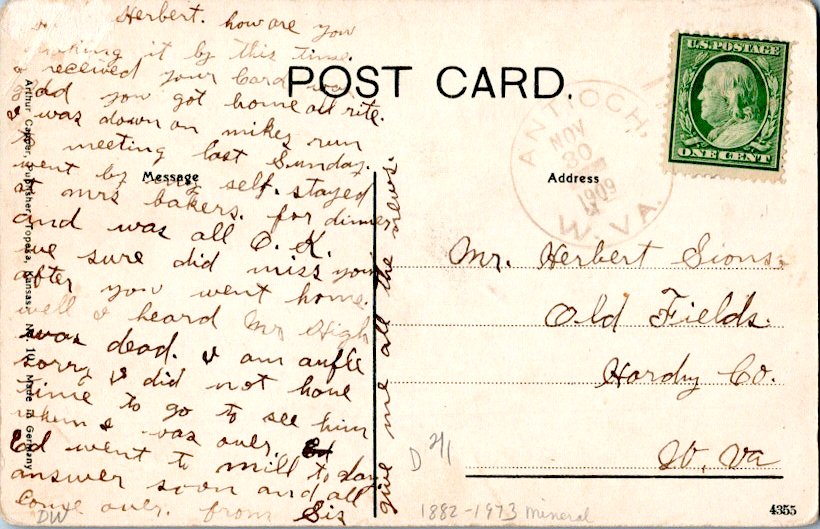 Herbert. how are you
making it by this time.
I received your Card was
glad you got home all rite.
I was down on mikes run
to meeting last Sunday.
went by my self. stayed
at mrs bakers. for dinner
and was all O. K.
we sure did miss you
after you went home.
well I heard Mr High
was dead. I am aufle
sorry I did not have
time to go to see him
when I was over.
Ed went to mill to day
answer soon and all
come over. from Sis
give me all the news.
Arthur Capper, Publisher, Topeka, Kansas. No. 102 Made in Germany
POST CARD.
Message
Address
U.S. POSTAGE
ONE CENT
ANTIOCH,
NOV
30
1909
W. VA.
Mr. Herbert Sions,
Old Fields.
Hardy Co.
W. Va
D 2/1
DW
1882-1973 Mineral
4355